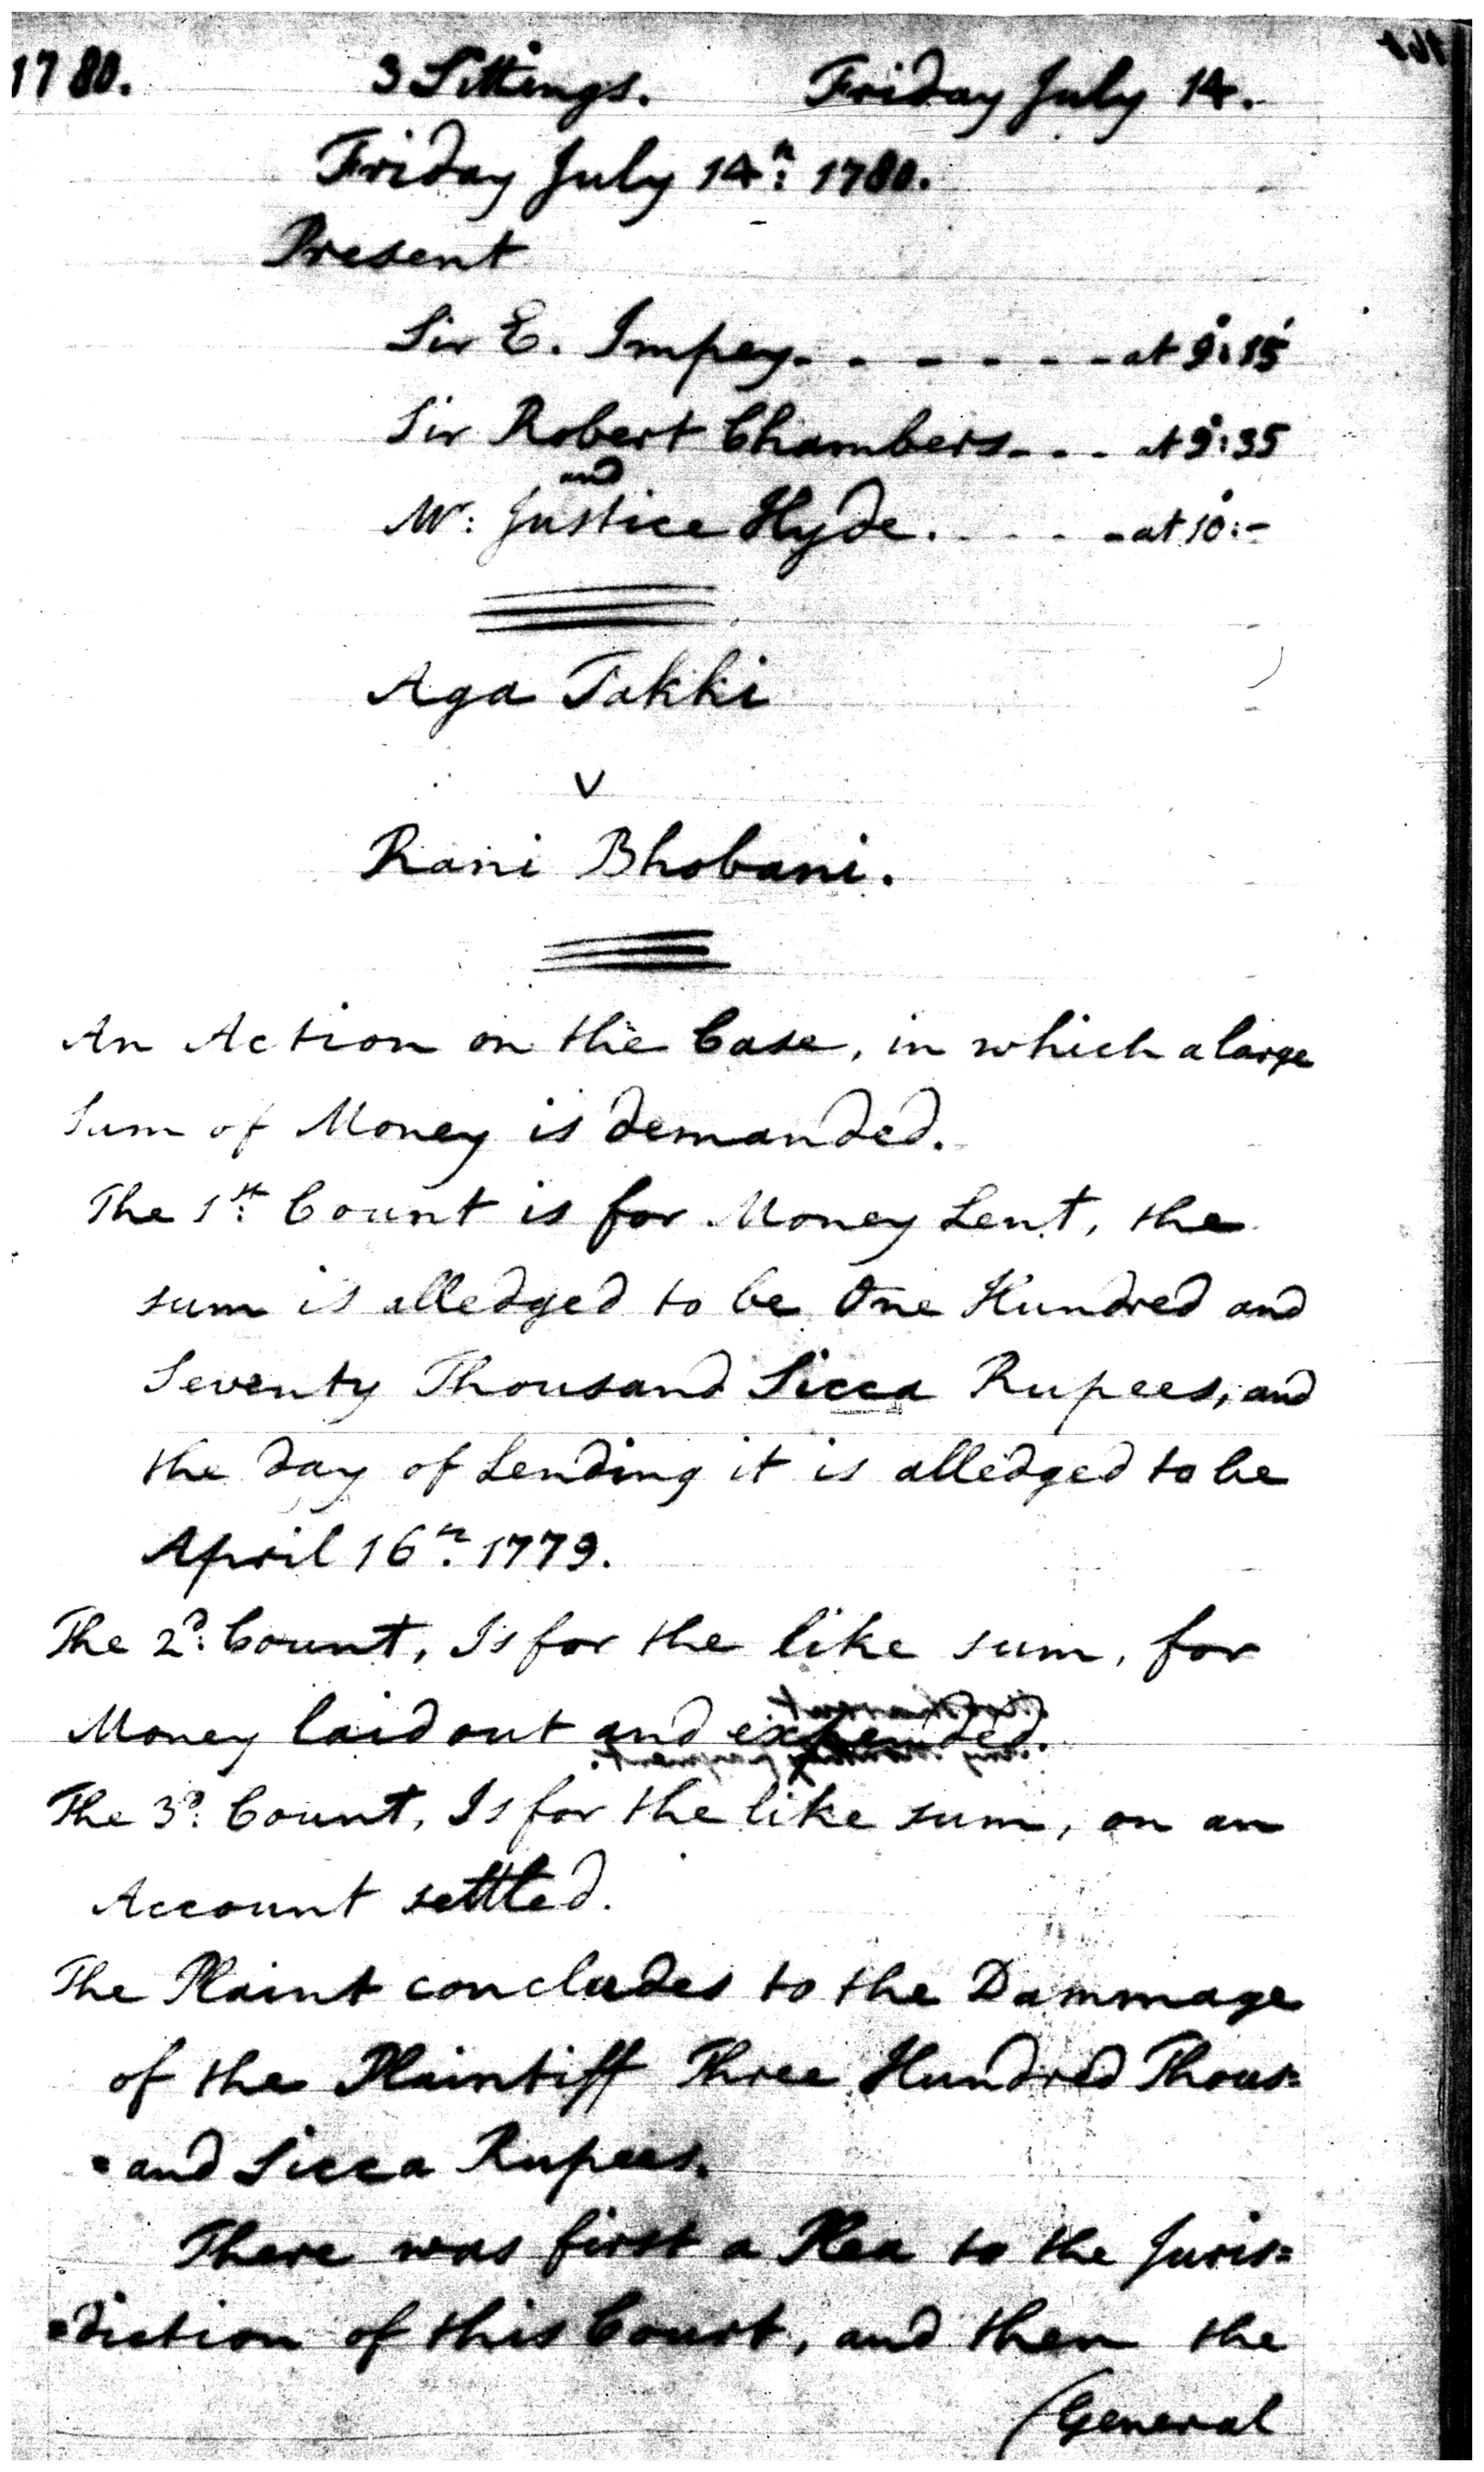 1780. 3 Sittings. Friday July 14.
Friday July 14th: 1780.
Present
Sir E. Impey - - - - - - - at 9:15'
Sir Robert Chambers - - - at 9:35
and
Mr: Justice Hyde. - - - - at 10:-
Aga Takki
v
Rani Bhobani.
An Action on the Case, in which a large
Sum of Money is demanded.
The 1st: Count is for Money Lent, the
sum is alledged to be One Hundred and
Seventy Thousand Sicca Rupees, and
the day of Lending it is alledged to be
April 16th: 1779.
The 2d: Count, Is for the like sum, for
Money laid out and expended.
The 3d: Count, Is for the like sum, on an
Account settled.
The Plaint concludes to the Dammage
of the Plaintiff Three Hundred Thous=
=and Sicca Rupees.
There was first a Plea to the Juris=
=diction of this Court, and then the
(General